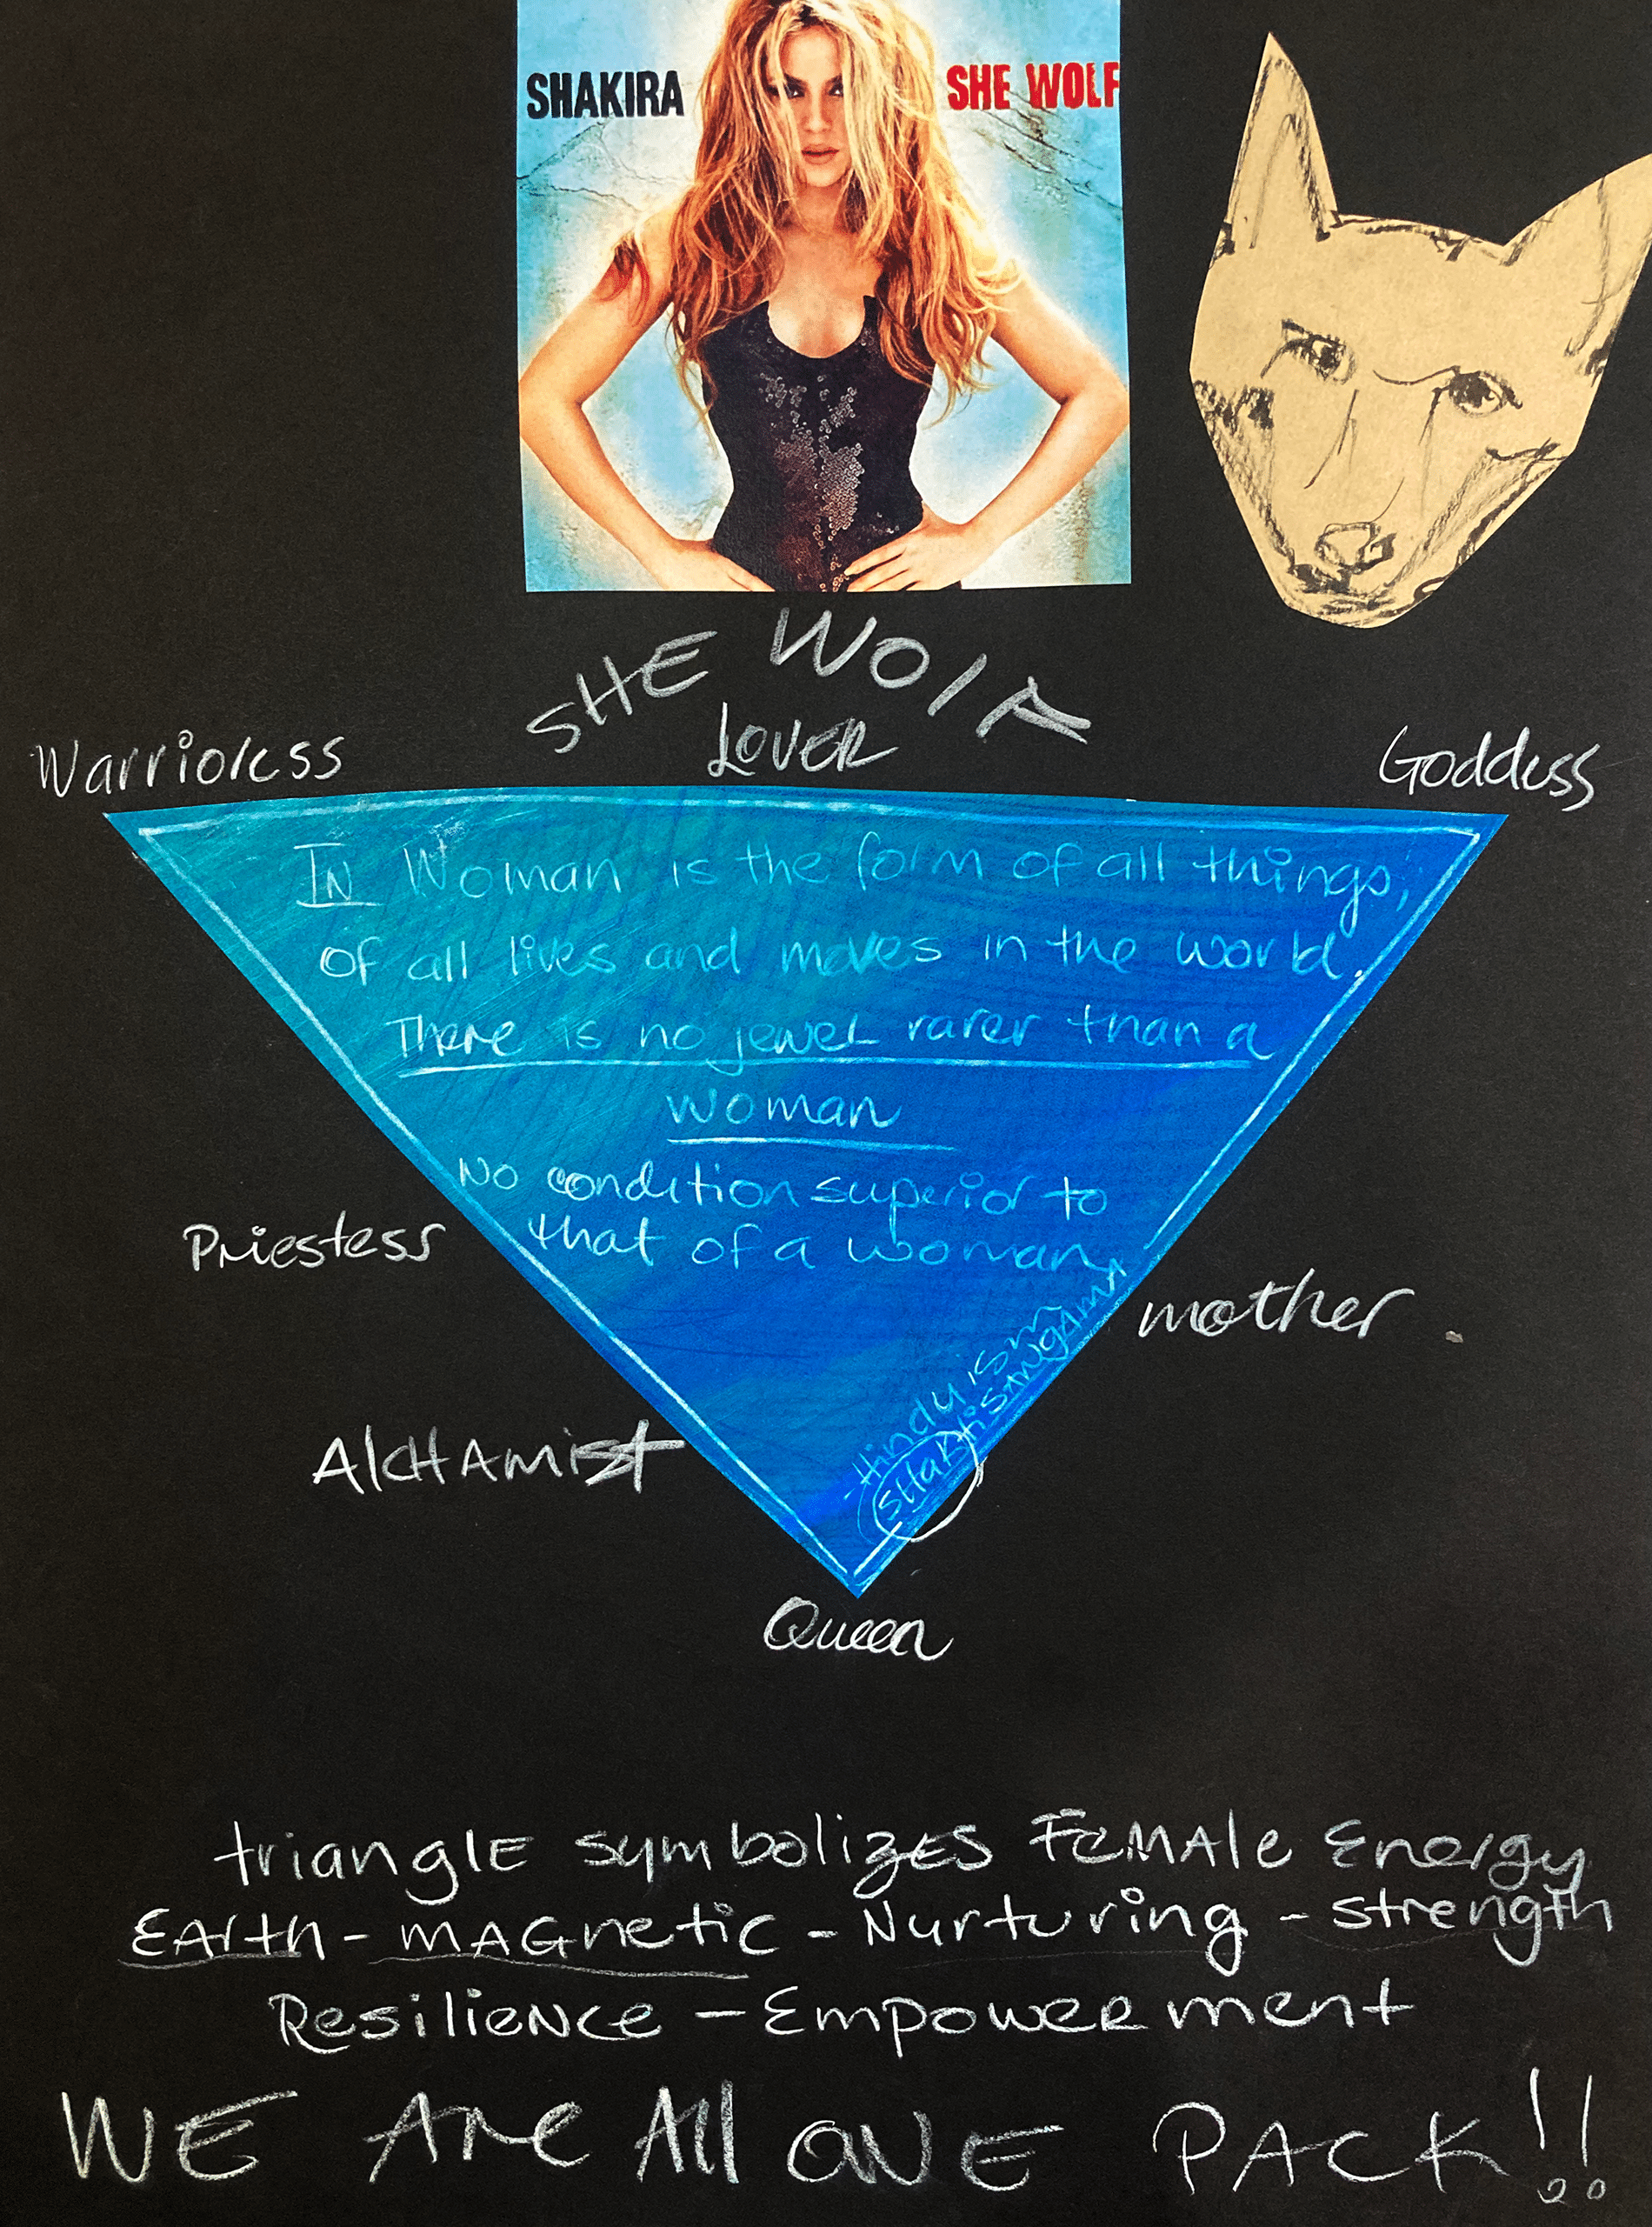 SHAKIRA SHE WOLF
SHE WOlF
Warrioress LOVER Goddess
IN Woman is the form of all things,
of all lives and moves in the world.
There is no jewel rarer than a
woman
No condition superior to
that of a woman
-Hinduism
SHaktiSANgAmA
Priestess
mother.
AlcHAmist
Queen
trianglE symbolizES FEMAle Energy
EArth - mAGnetic - Nurturing - strength
ResilieNce - EmpowERment
WE Are All ONE PACK!!